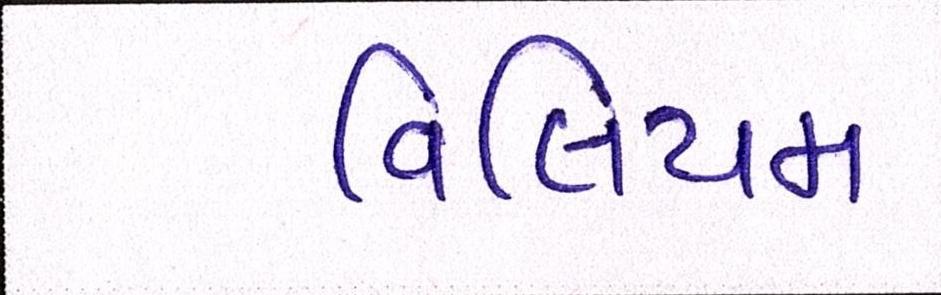 વિલિયમ